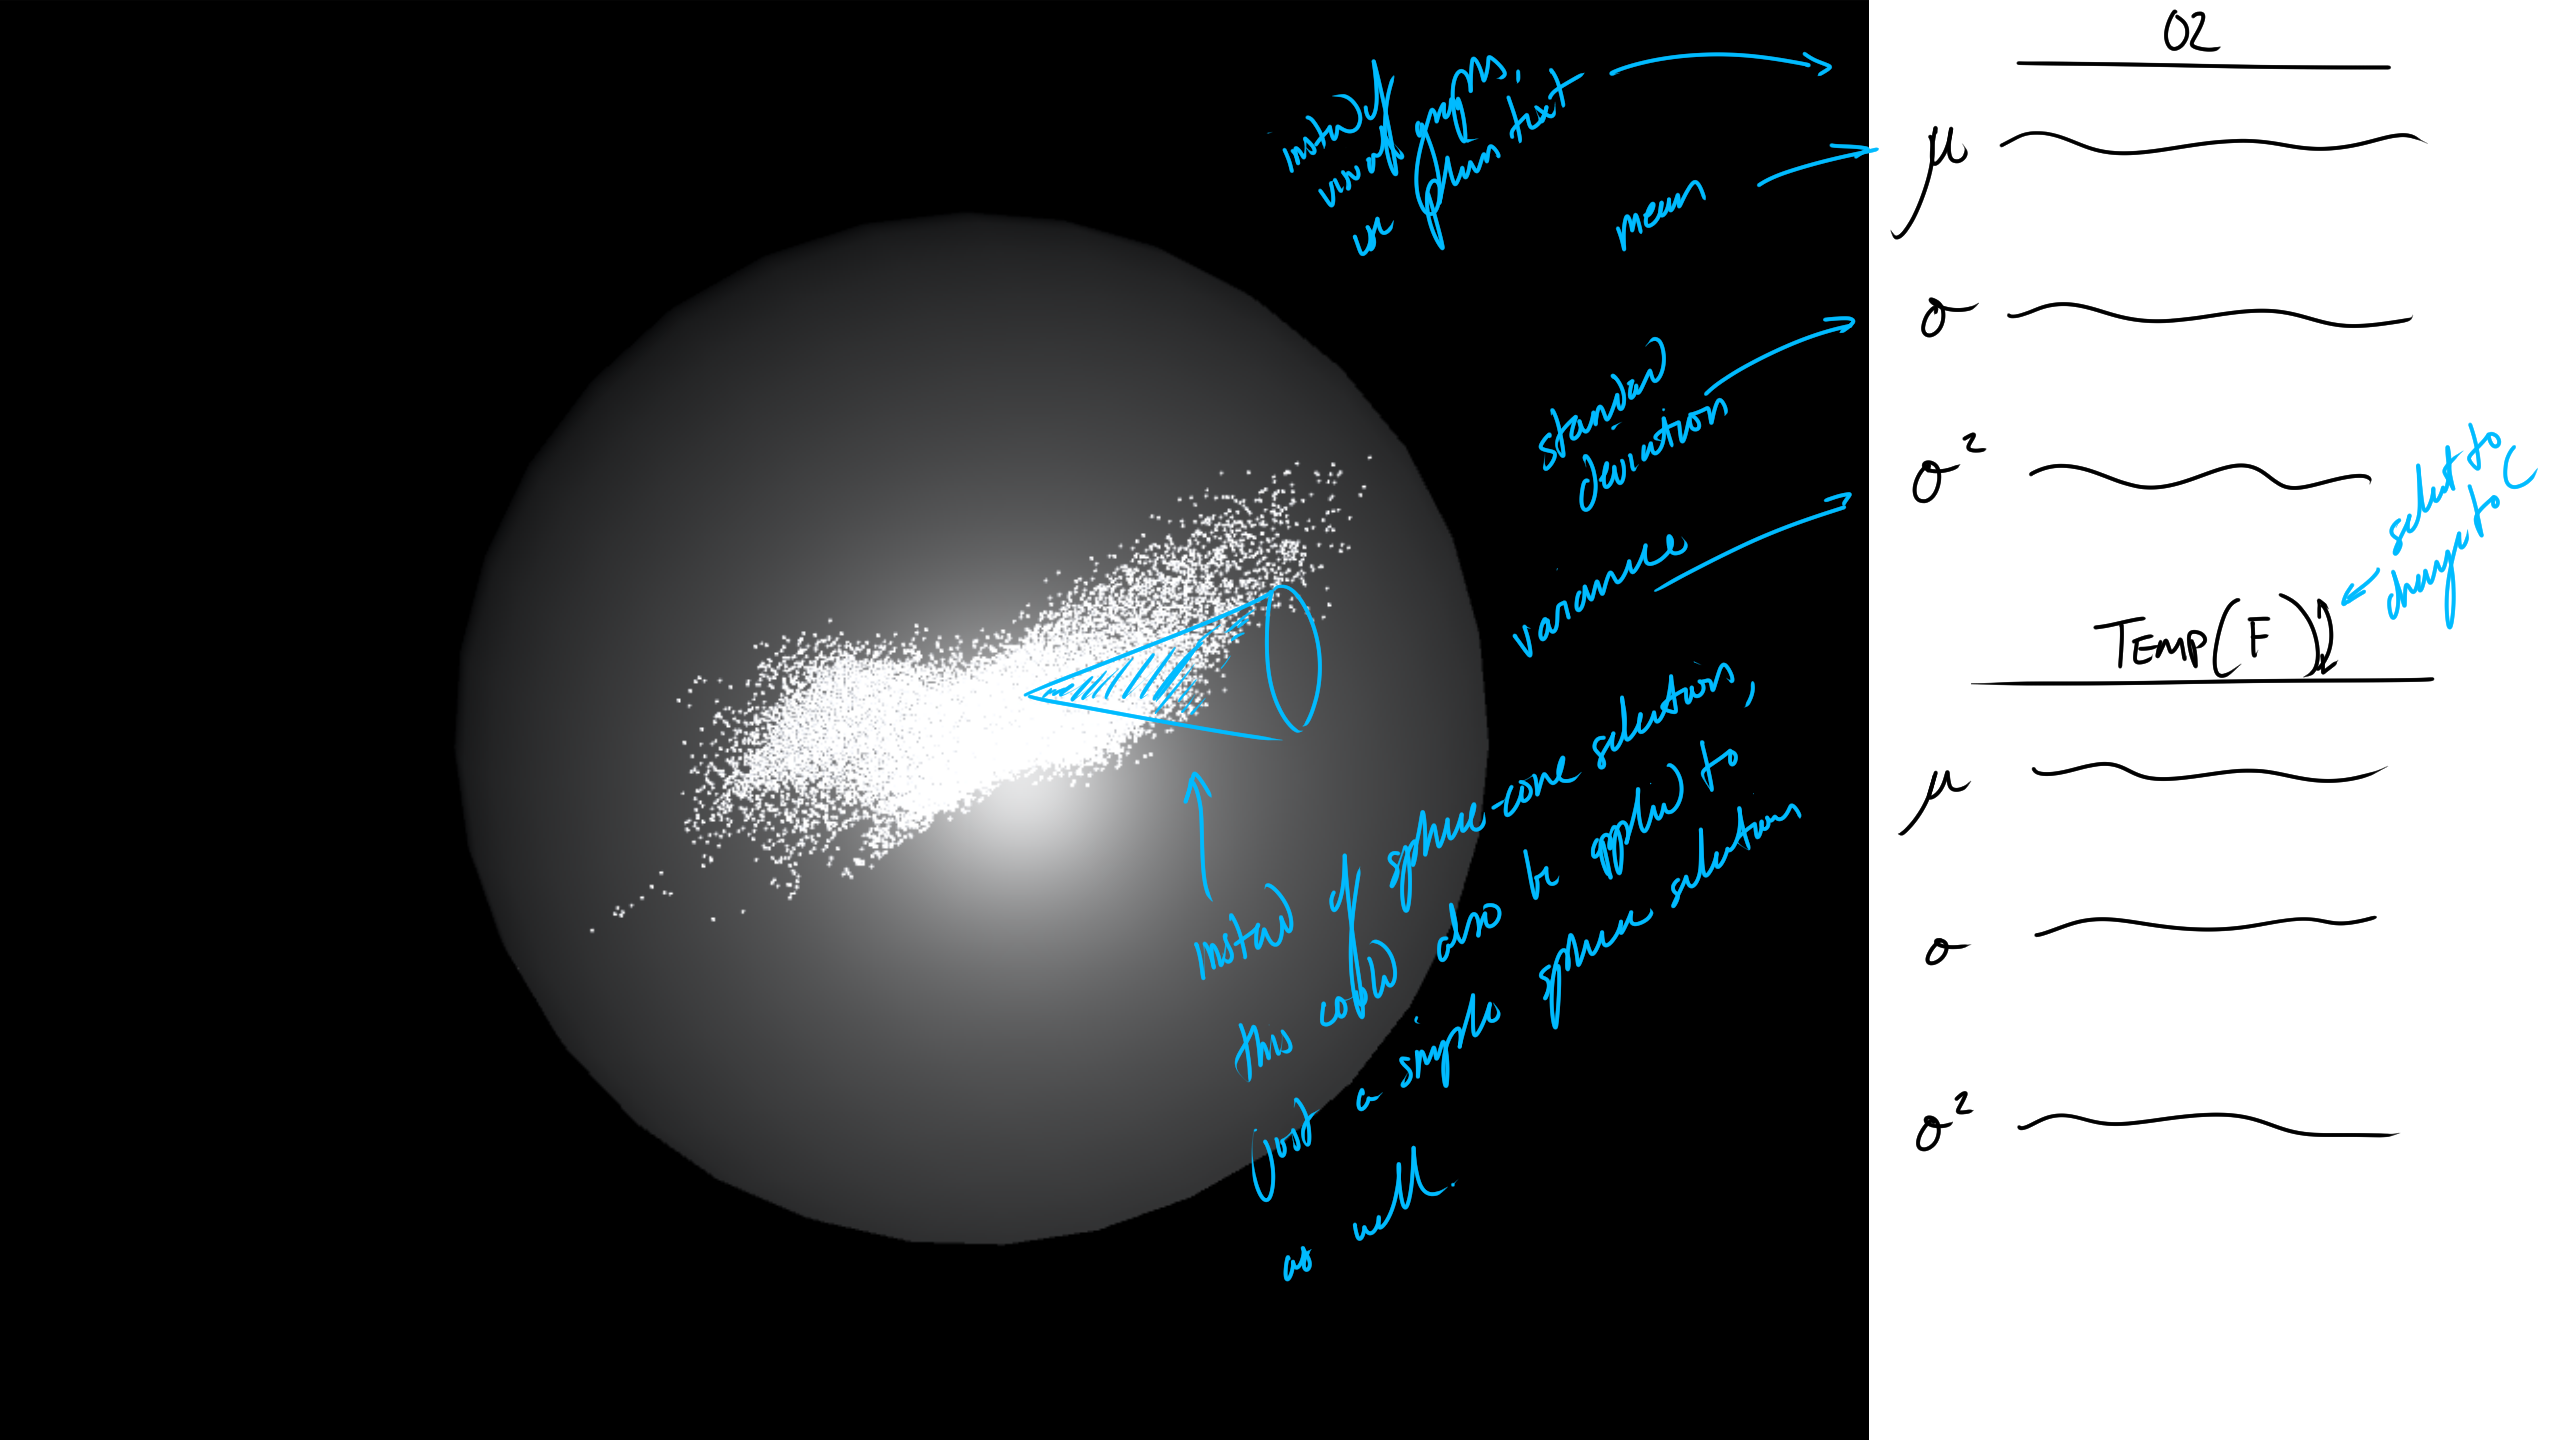 instead of
visual graphs,
or plain text
mean
standard
deviation
variance
instead of sphere-cone selection,
this could also be applied to
just a simple sphere selection
as well.
O2
μ
σ
σ²
select to
change to C
TEMP(F)
μ
σ
σ²